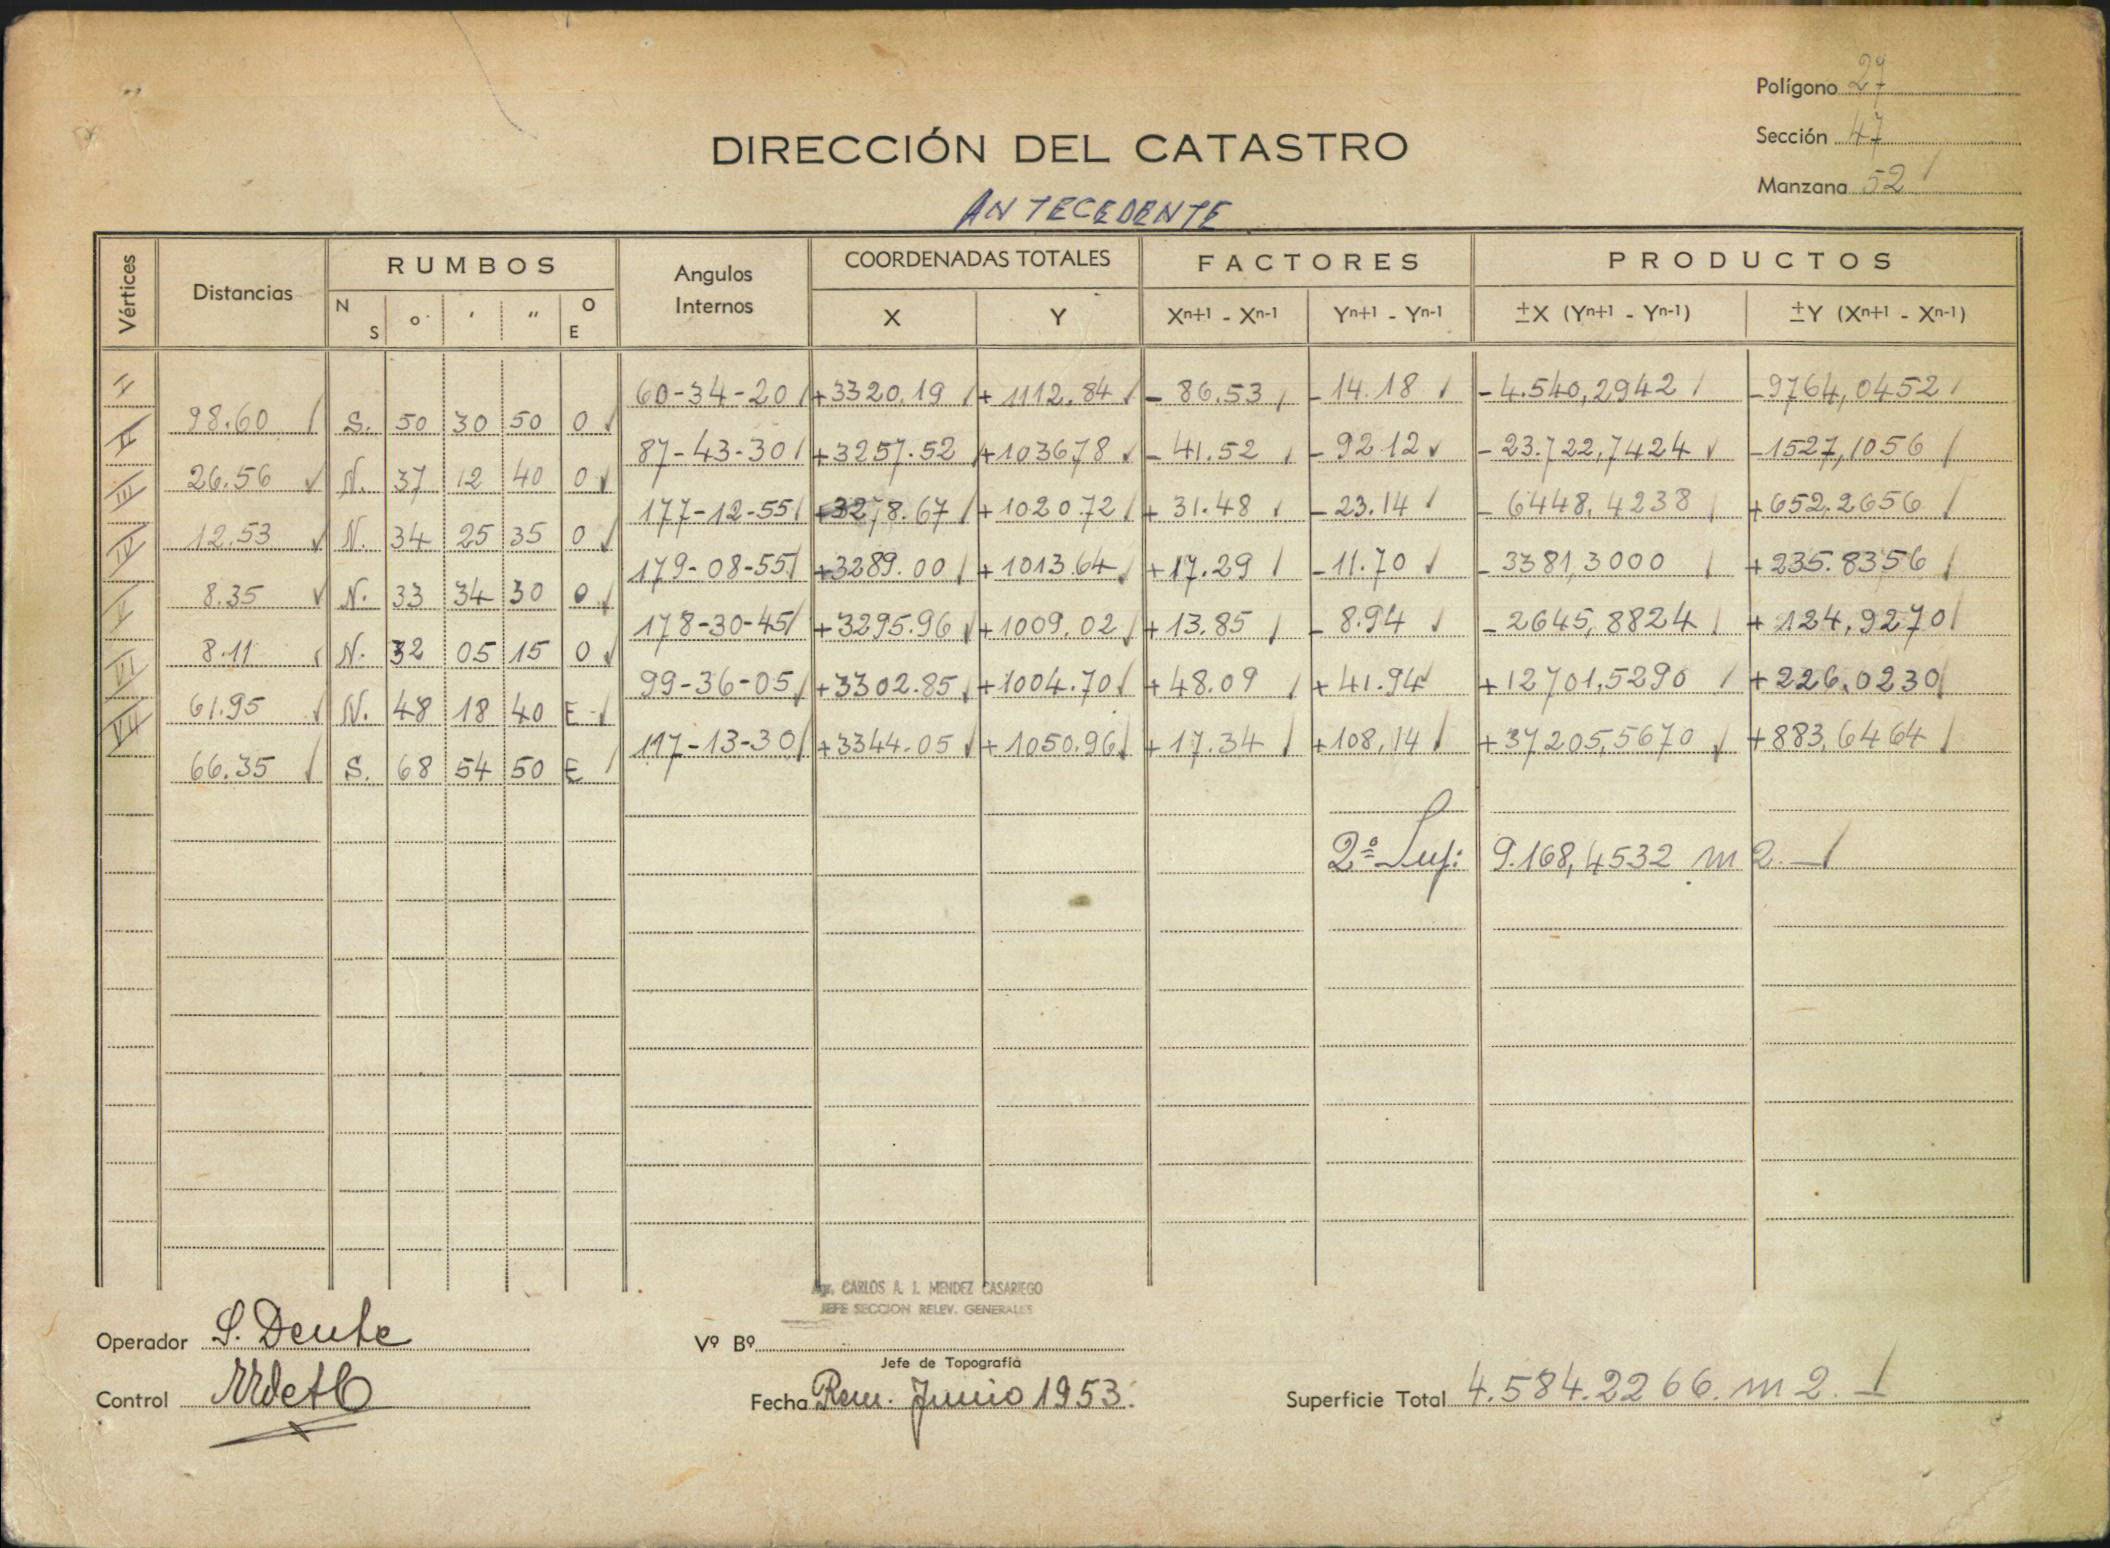 Polígono 27
Sección 47
Manzana 52
DIRECCIÓN DEL CATASTRO
ANTECEDENTE
Vértices Distancias RUMBOS Angulos Internos COORDENADAS TOTALES FACTORES PRODUCTOS
N S o ' " O E X Y Xn+1 - Xn-1 Yn+1 - Yn-1 ±X (Yn+1 - Yn-1) ±Y (Xn+1 - Xn-1)
I 60-34-20 +3320.19 +1112.84 -86.53 -14.18 -4.540,2942 -9764,0452
98.60 S. 50 30 50 O
II 87-43-30 +3257.52 +1036.78 -41.52 -92.12 -23.722,7424 -1527,1056
26.56 N. 37 12 40 O
III 177-12-55 +3278.67 +1020.72 +31.48 -23.14 -6448,4238 +652.2656
12.53 N. 34 25 35 O
IV 179-08-55 +3289.00 +1013.64 +17.29 -11.70 -3381,3000 +235.8356
8.35 N. 33 34 30 O
V 178-30-45 +3295.96 +1009.02 +13.85 -8.94 -2645,8824 +124,9270
8.11 N. 32 05 15 O
VI 99-36-05 +3302.85 +1004.70 +48.09 +41.94 +12701,5290 +226,0230
61.95 N. 48 18 40 E
VII 117-13-30 +3344.05 +1050.96 +17.34 +108,14 +37205,5670 +883,6464
66.35 S. 68 54 50 E
2ª Sup: 9.168,4532 m2.
Agr. CARLOS A. J. MENDEZ CASARIEGO
JEFE SECCION RELEV. GENERALES
Operador S. Dente Vº Bº
Jefe de Topografía
Control Fecha Rem. Junio 1953. Superficie Total 4.584.2266. m2.